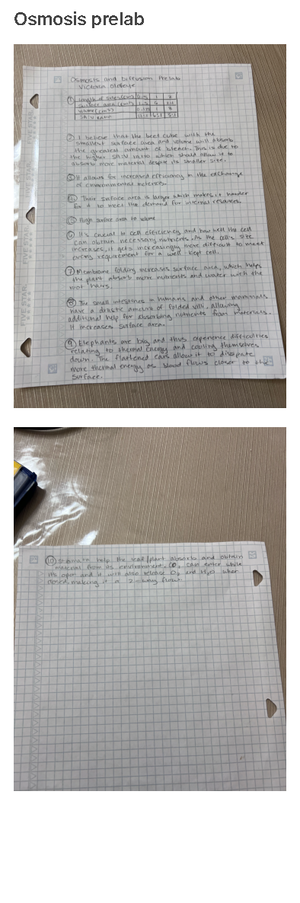 Osmosis prelab
Osmosis and Diffusion Prelab
Victoria
① Length of side (cm)
Surface area (cm²)
Volume (cm³)
SA:V ratio
② I believe that the beet cube with the
smallest surface area and volume will absorb
the greatest amount of stain. This is due to
the higher SA:V ratio which should allow it to
absorb more material despite its smaller size.
③ It allows for increased efficiency in the exchange
of environmental materials.
④ Their surface area is large which makes it harder
for it to meet the demand for internal resources.
⑤ High surface area to volume
⑥ It's crucial to cell efficiency and how well the cell
can obtain necessary nutrients. As the cell's size
increases, it gets increasingly more difficult to meet
every requirement for a well kept cell.
⑦ Membrane folding increases surface area, which helps
the plant absorb more nutrients and water with the
root hairs.
⑧ The small intestines in humans and other mammals
have a drastic amount of folded villi, allowing
additional help for absorbing nutrients from materials.
It increases surface area.
⑨ Elephants are big and thus experience difficulties
relating to thermal energy and cooling themselves
down. The flattened ears allow it to dissipate
more thermal energy as blood flows closer to the
surface.
⑩ Stomata help the leaf/plant absorb and obtain
material from its environment. CO₂ can enter while
its open and it will also release O₂ and H₂O when
closed making it a 2-way flow.